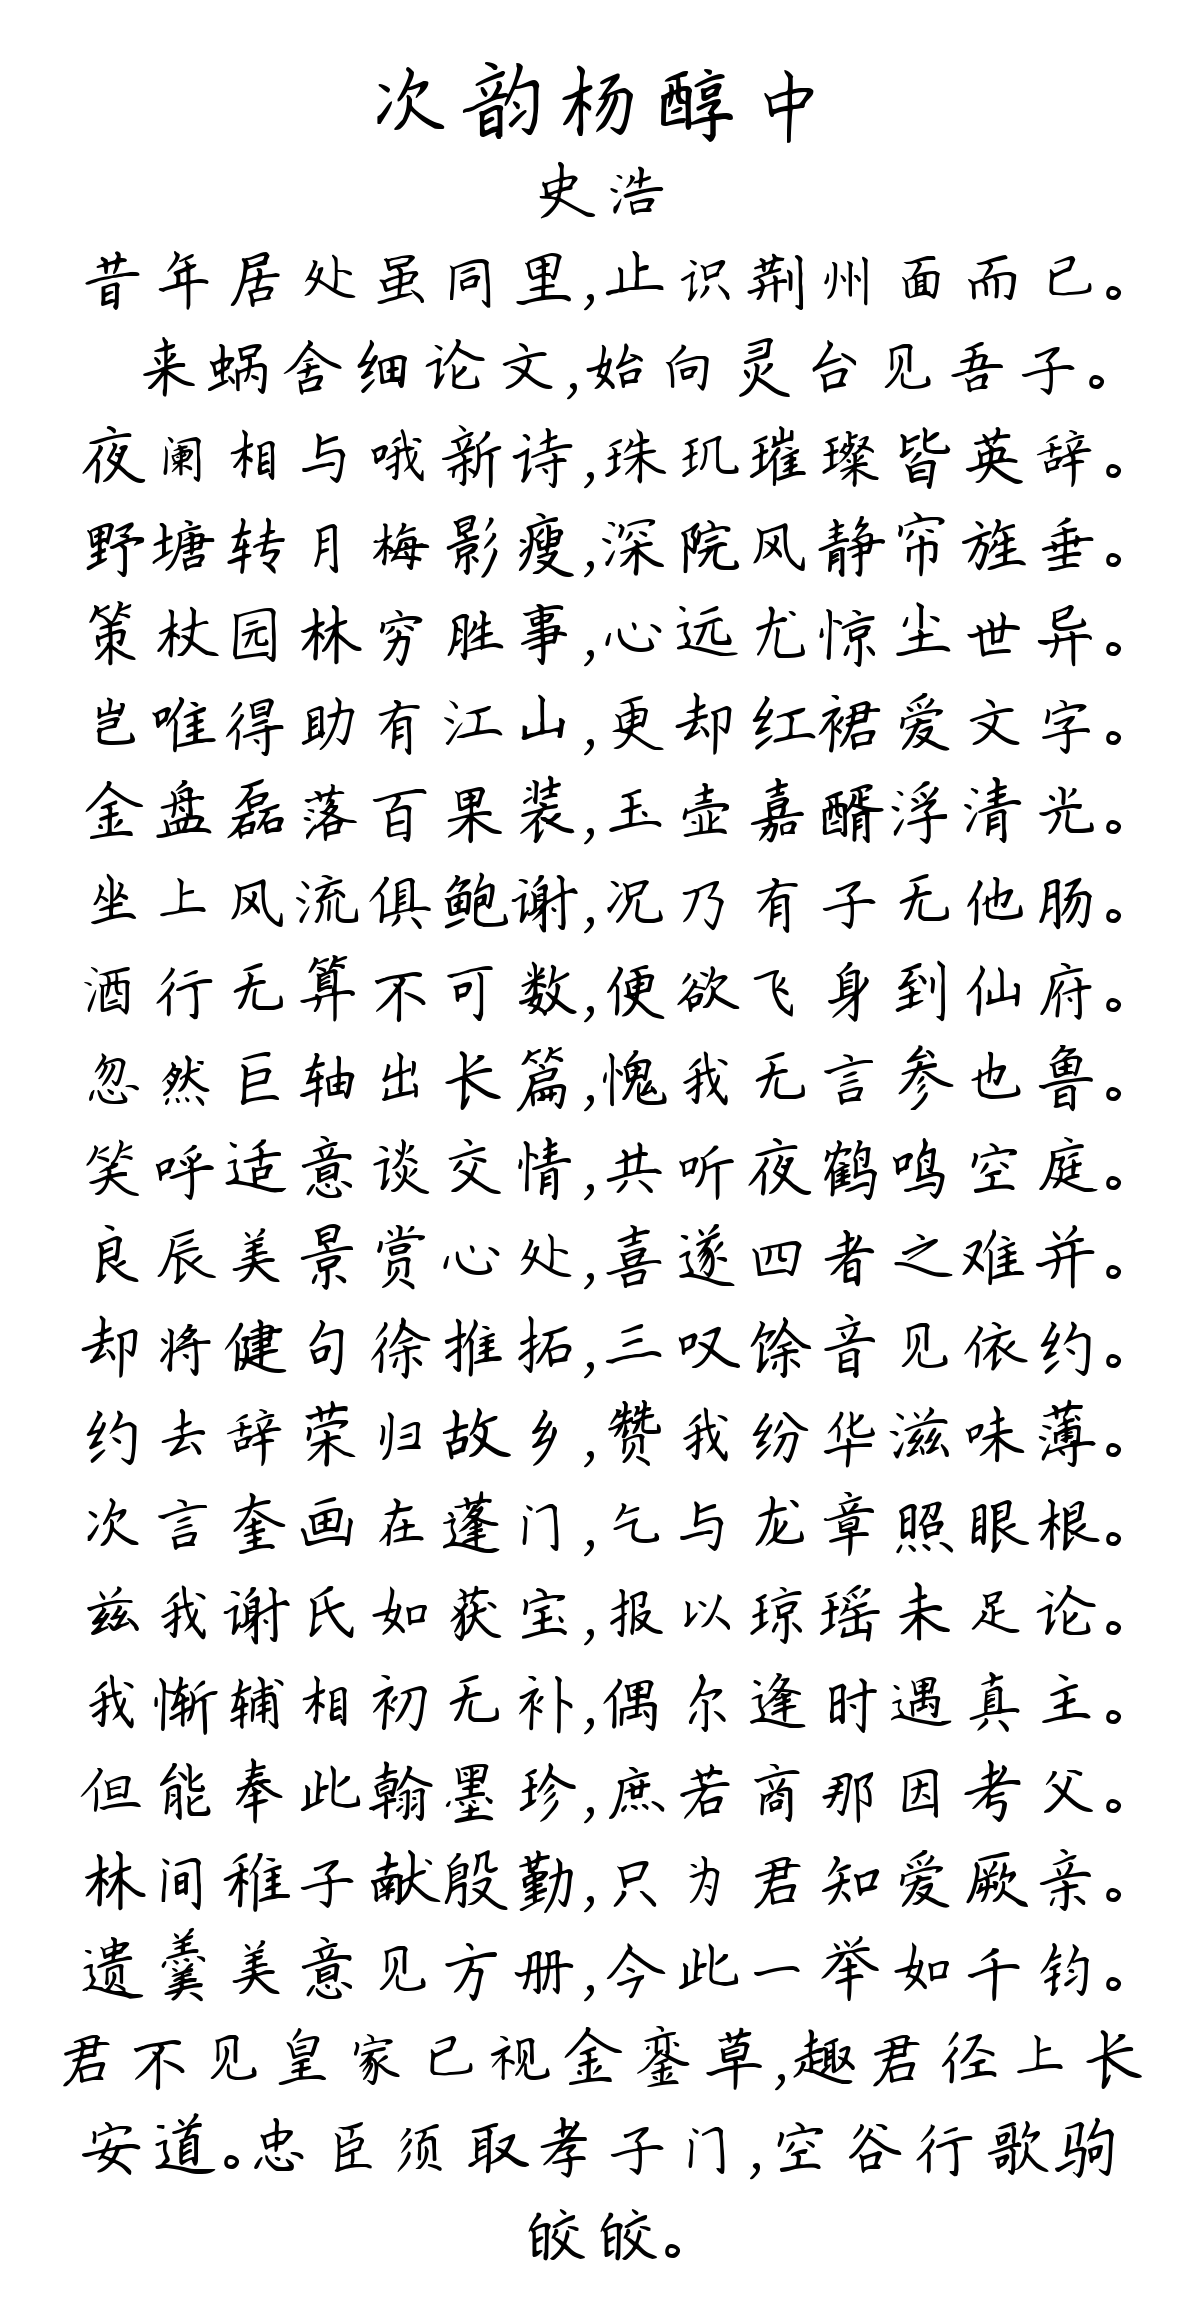 次韵杨醇中
史浩
昔年居处虽同里,止识荆州面而已。
来蜗舍细论文,始向灵台见吾子。
夜阑相与哦新诗,珠玑璀璨皆英辞。
野塘转月梅影瘦,深院风静帘旌垂。
策杖园林穷胜事,心远尤惊尘世异。
岂唯得助有江山,更却红裙爱文字。
金盘磊落百果装,玉壶嘉醑浮清光。
坐上风流俱鲍谢,况乃有子无他肠。
酒行无算不可数,便欲飞身到仙府。
忽然巨轴出长篇,愧我无言参也鲁。
笑呼适意谈交情,共听夜鹤鸣空庭。
良辰美景赏心处,喜遂四者之难并。
却将健句徐推拓,三叹馀音见依约。
约去辞荣归故乡,赞我纷华滋味薄。
次言奎画在蓬门,乞与龙章照眼根。
兹我谢氏如获宝,报以琼瑶未足论。
我惭辅相初无补,偶尔逢时遇真主。
但能奉此翰墨珍,庶若商那因考父。
林间稚子献殷勤,只为君知爱厥亲。
遗羹美意见方册,今此一举如千钧。
君不见皇家已视金銮草,趣君径上长
安道。忠臣须取孝子门,空谷行歌驹
皎皎。